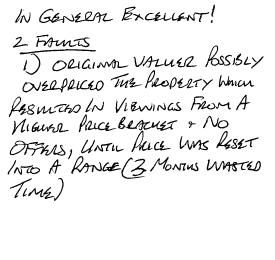 IN GENERAL EXCELLENT!
2 FAULTS
1) ORIGINAL VALUER POSSIBLY
OVERPRICED THE PROPERTY WHICH
RESULTED IN VIEWINGS FROM A
HIGHER PRICE BRACKET + NO
OFFERS, UNTIL PRICE WAS RESET
INTO A RANGE (3 MONTHS WASTED
TIME)